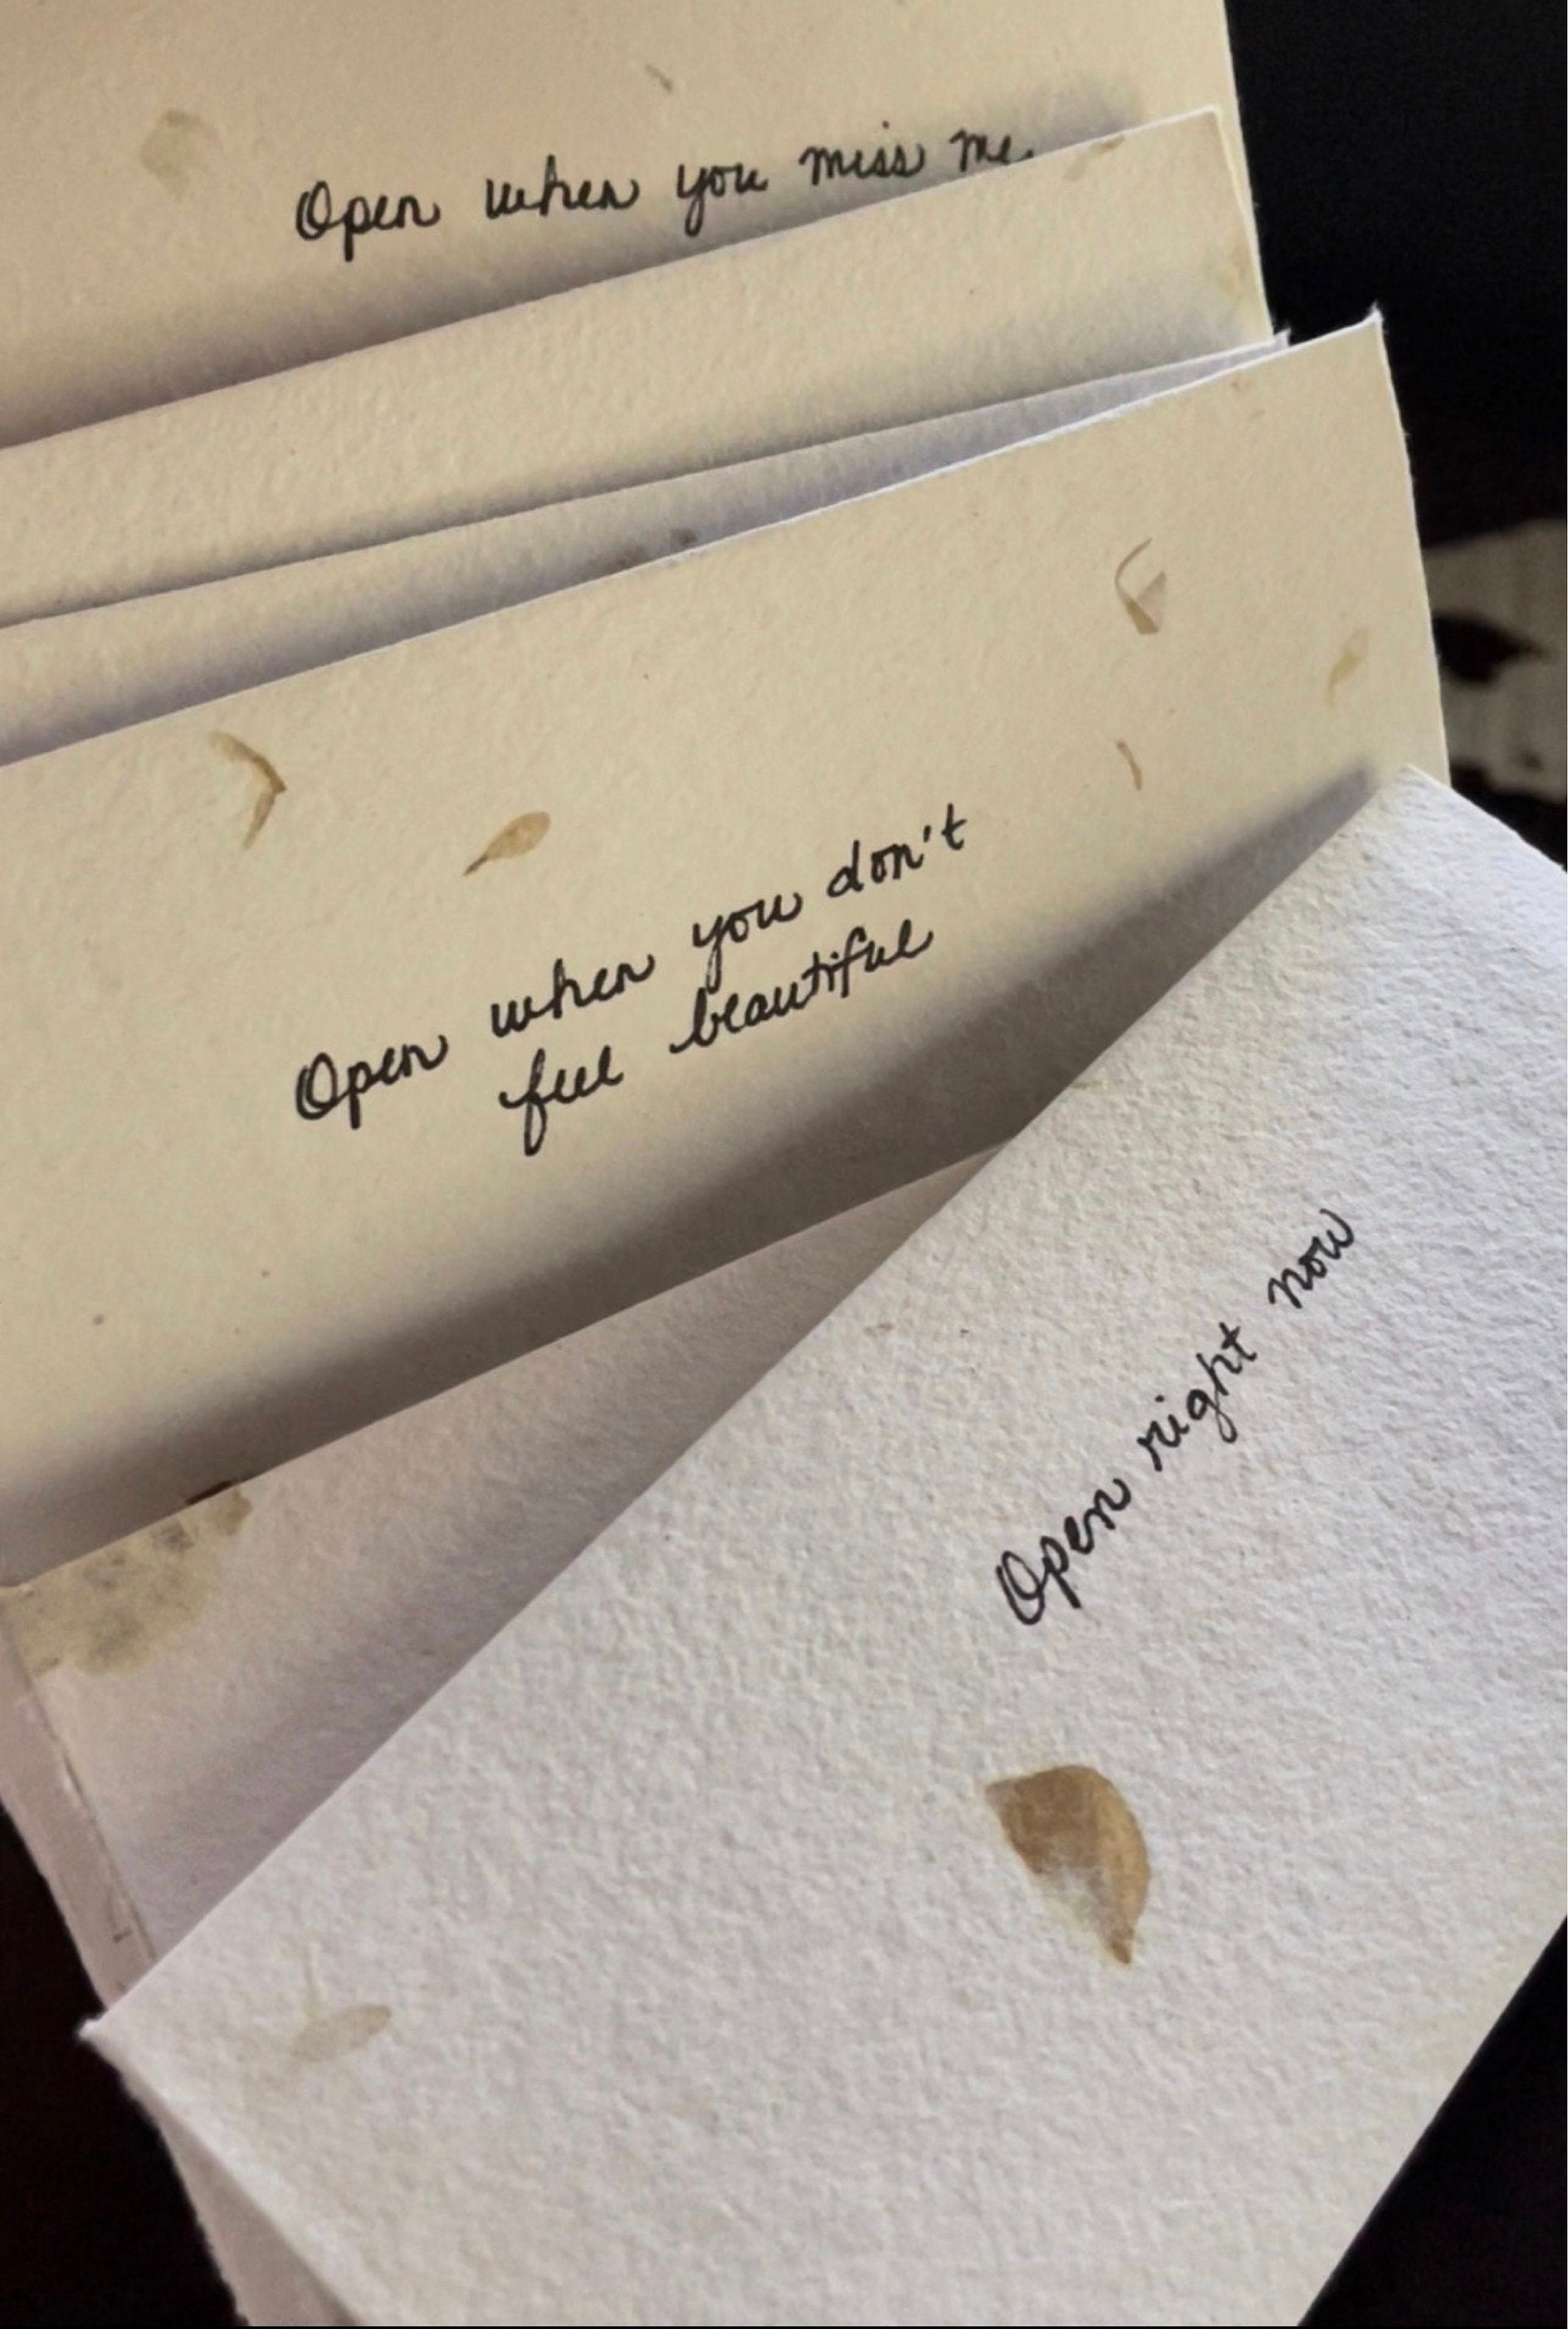 Open when you miss me
Open when you don't
feel beautiful
Open right now